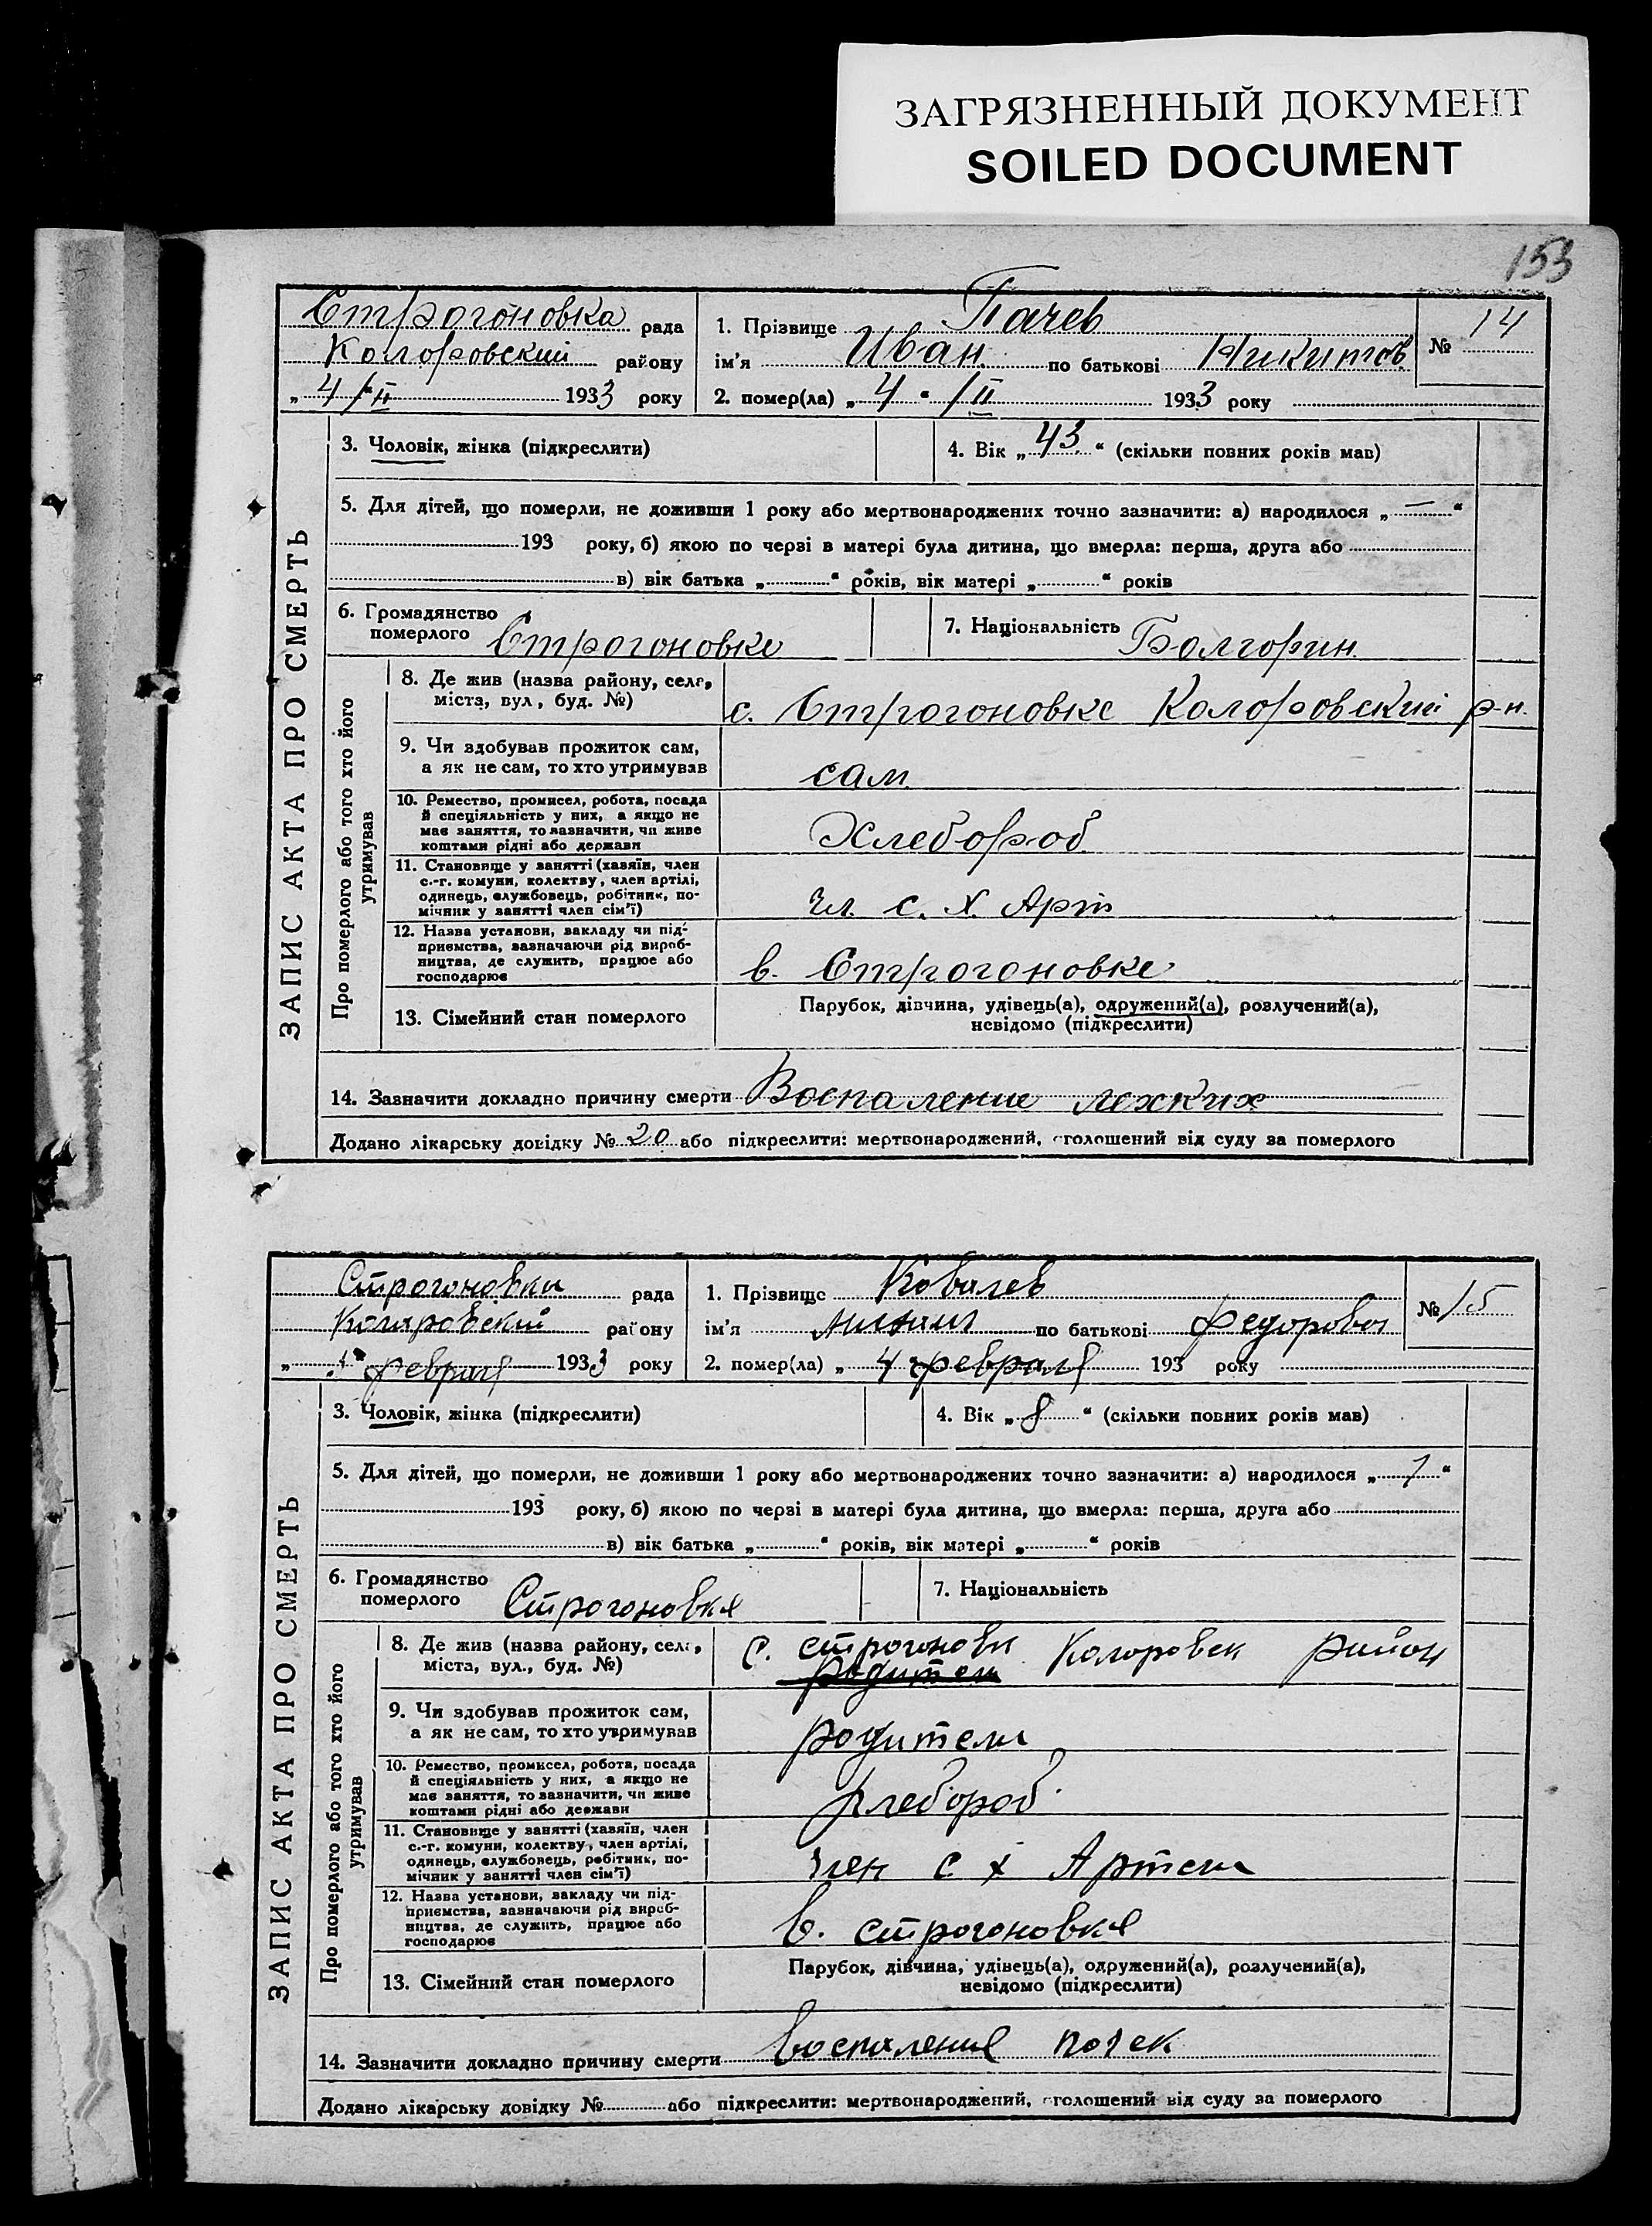 ЗАГРЯЗНЕННЫЙ ДОКУМЕНТ
SOILED DOCUMENT
153
Строгоновка рада
Колоровский району
„ 4/II 1933 року
1. Прізвище Пачев
ім'я Иван по батькові Никитов
2. помер(ла) „ 4 “ /II 1933 року
№ 14
ЗАПИС АКТА ПРО СМЕРТЬ
3. Чоловік, жінка (підкреслити)
4. Вік „ 43 “ (скільки повних років мав)
5. Для дітей, що померли, не доживши 1 року або мертвонароджених точно зазначити: а) народилося „ — “
193 року, б) якою по черзі в матері була дитина, що вмерла: перша, друга або
в) вік батька „ “ років, вік матері „ “ років
6. Громадянство
померлого Строгоновке
7. Національність Болгорин.
Про померлого або того хто його
утримував
8. Де жив (назва району, села,
міста, вул., буд. №)
с. Строгоновке Колоровский р-н.
9. Чи здобував прожиток сам,
а як не сам, то хто утримував
сам.
10. Ремество, промисел, робота, посада
й спеціяльність у них, а якщо не
має заняття, то зазначити, чи живе
коштами рідні або держави
Хлебороб
11. Становище у занятті (хазяїн, член
с.-г. комуни, колективу, член артілі,
одинець, службовець, робітник, по-
мічник у занятті член сім'ї)
чл. с. х. Арт
12. Назва установи, закладу чи під-
приємства, зазначаючи рід вироб-
ництва, де служить, працює або
господарює
в. Строгоновке
13. Сімейний стан померлого
Парубок, дівчина, удівець(а), одружений(а), розлучений(а),
невідомо (підкреслити)
14. Зазначити докладно причину смерти Воспаление лехких
Додано лікарську довідку № 20 або підкреслити: мертвонароджений, оголошений від суду за померлого
Строгоновки рада
Коларовский району
„ 4 “ февраля 1933 року
1. Прізвище Ковалев
ім'я по батькові Федорович
2. помер(ла) „ 4 февраля 193 року
№ 15
ЗАПИС АКТА ПРО СМЕРТЬ
3. Чоловік, жінка (підкреслити)
4. Вік „ 8 “ (скільки повних років мав)
5. Для дітей, що померли, не доживши 1 року або мертвонароджених точно зазначити: а) народилося „ “
193 року, б) якою по черзі в матері була дитина, що вмерла: перша, друга або
в) вік батька „ “ років, вік матері „ “ років
6. Громадянство
померлого Строгоновкя
7. Національність
Про померлого або того хто його
утримував
8. Де жив (назва району, села,
міста, вул., буд. №)
с. строгоновк Колоровск район
родители
9. Чи здобував прожиток сам,
а як не сам, то хто утримував
родители
10. Ремество, промисел, робота, посада
й спеціяльність у них, а якщо не
має заняття, то зазначити, чи живе
коштами рідні або держави
хлебороб
11. Становище у занятті (хазяїн, член
с.-г. комуни, колективу, член артілі,
одинець, службовець, робітник, по-
мічник у занятті член сім'ї)
член с х Артели
12. Назва установи, закладу чи під-
приємства, зазначаючи рід вироб-
ництва, де служить, працює або
господарює
в. строгоновкя
13. Сімейний стан померлого
Парубок, дівчина, удівець(а), одружений(а), розлучений(а),
невідомо (підкреслити)
14. Зазначити докладно причину смерти воспаления почек
Додано лікарську довідку № або підкреслити: мертвонароджений, оголошений від суду за померлого